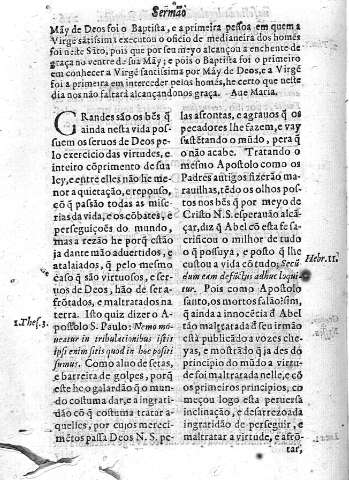 Sermão
Mãy de Deos foi o Baptista, e a primeira pessoa em quem a
Virgẽ sãtissim: executou o oficio de medianeira dos homẽs
foi neste Sãto, pois que por seu meyo alcançou a enchente de
graça no ventre de sua Mãy; e pois o Baptista foi o primeiro
em conhecer a Virgẽ santissima por Mãy de Deos, e a Virgẽ
foi a primeira em interceder pelos homẽs, he certo que neste
dia nos não faltará alcançandonos graça. Aue Maria.
GRandes são os bẽs q̃
ainda nesta vida pos-
suem os seruos de Deos pe-
lo exercicio das virtudes, e
inteiro cõprimento de sua
ley, e entre elles não he me-
nor a quietação, e repouso,
cõ q̃ passão todas as mise-
rias da vida, e os cõbates, e
perseguições do mundo,
mas a rezão he porq̃ estão
ja dante mão aduertidos, e
atalaiados, q̃ pelo mesmo
caso q̃ são virtuosos, e ser-
uos de Deos, hão de ser a-
frõtados, e maltratados na
terra. Isto quiz dizer o A-
postolo S. Paulo: Nemo mo-
1. Thes. 3.
ueatur in tribulationibus istis
ipsi enim scitis quod in hoc positi
sumus. Como aluo de setas,
e barreira de golpes, porq̃
este he o galardão q̃ o mun-
do costuma dar, e a ingrati-
dão cõ q̃ costuma tratar a-
quelles, por cujos mereci-
mẽtos passa Deos N. S. pe-
las afrontas, e agrauos q̃ os
pecadores lhe fazem, e vay
sustẽtando o mũdo, pera q̃
o não acabe. Tratando o
mesmo Apostolo como os
Padres antigos fizerão ma-
rauilhas, tẽdo os olhos pos-
tos nos bẽs q̃ por meyo de
Cristo N. S. esperauão alcã-
çar, diz q̃ Abel cõ esta fe sa-
crificou o milhor de tudo
o q̃ possuya, e posto q̃ lhe
custou a vida cõ tudo, Secũ-
Hebr. 11.
dum eam defũctus adhuc loqui-
tur. Pois como Apostolo
santo, os mortos falão: sim,
q̃ ainda a innocẽcia d̃ Abel
tão maltratada d̃ seu irmão
està publicado a vozes che-
yas, e mostrãdo q̃ ja des do
principio do mũdo a virtu-
de foi maltratada nelle, e d̃
os primeiros principios, co
meçou logo esta peruersa
inclinação, e desarrezoada
ingratidão de perseguir, e
maltratar a virtude, e afrõ-
tar,